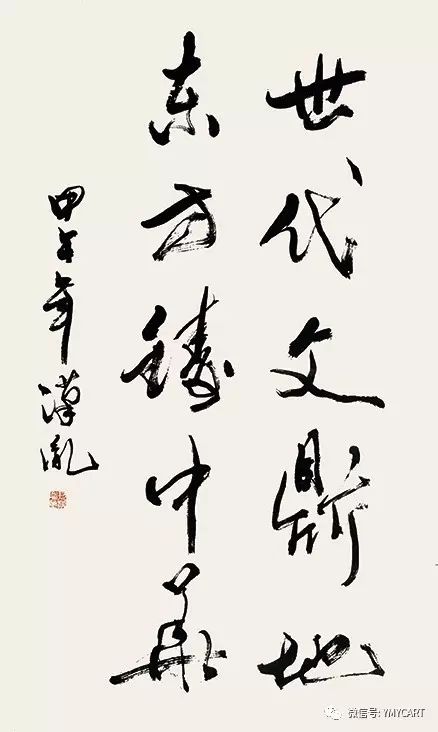 世代文鼎地
东方铸中華
甲午年 漢胤
微信号: YMYCART